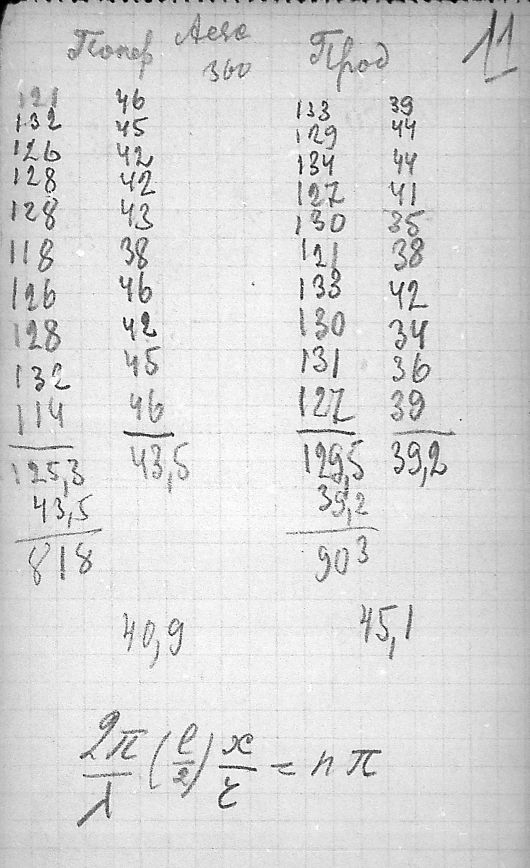 Попер 360 Прод 11
121 46 133 39
132 45 129 44
126 42 134 44
128 42 127 41
128 43 130 35
118 38 121 38
126 46 133 42
128 42 130 34
132 45 131 36
114 46 127 39
125,3 43,5 129,5 39,2
43,5 39,2
818 903
40,9 45,1
2π/λ (l/2) x/r = nπ